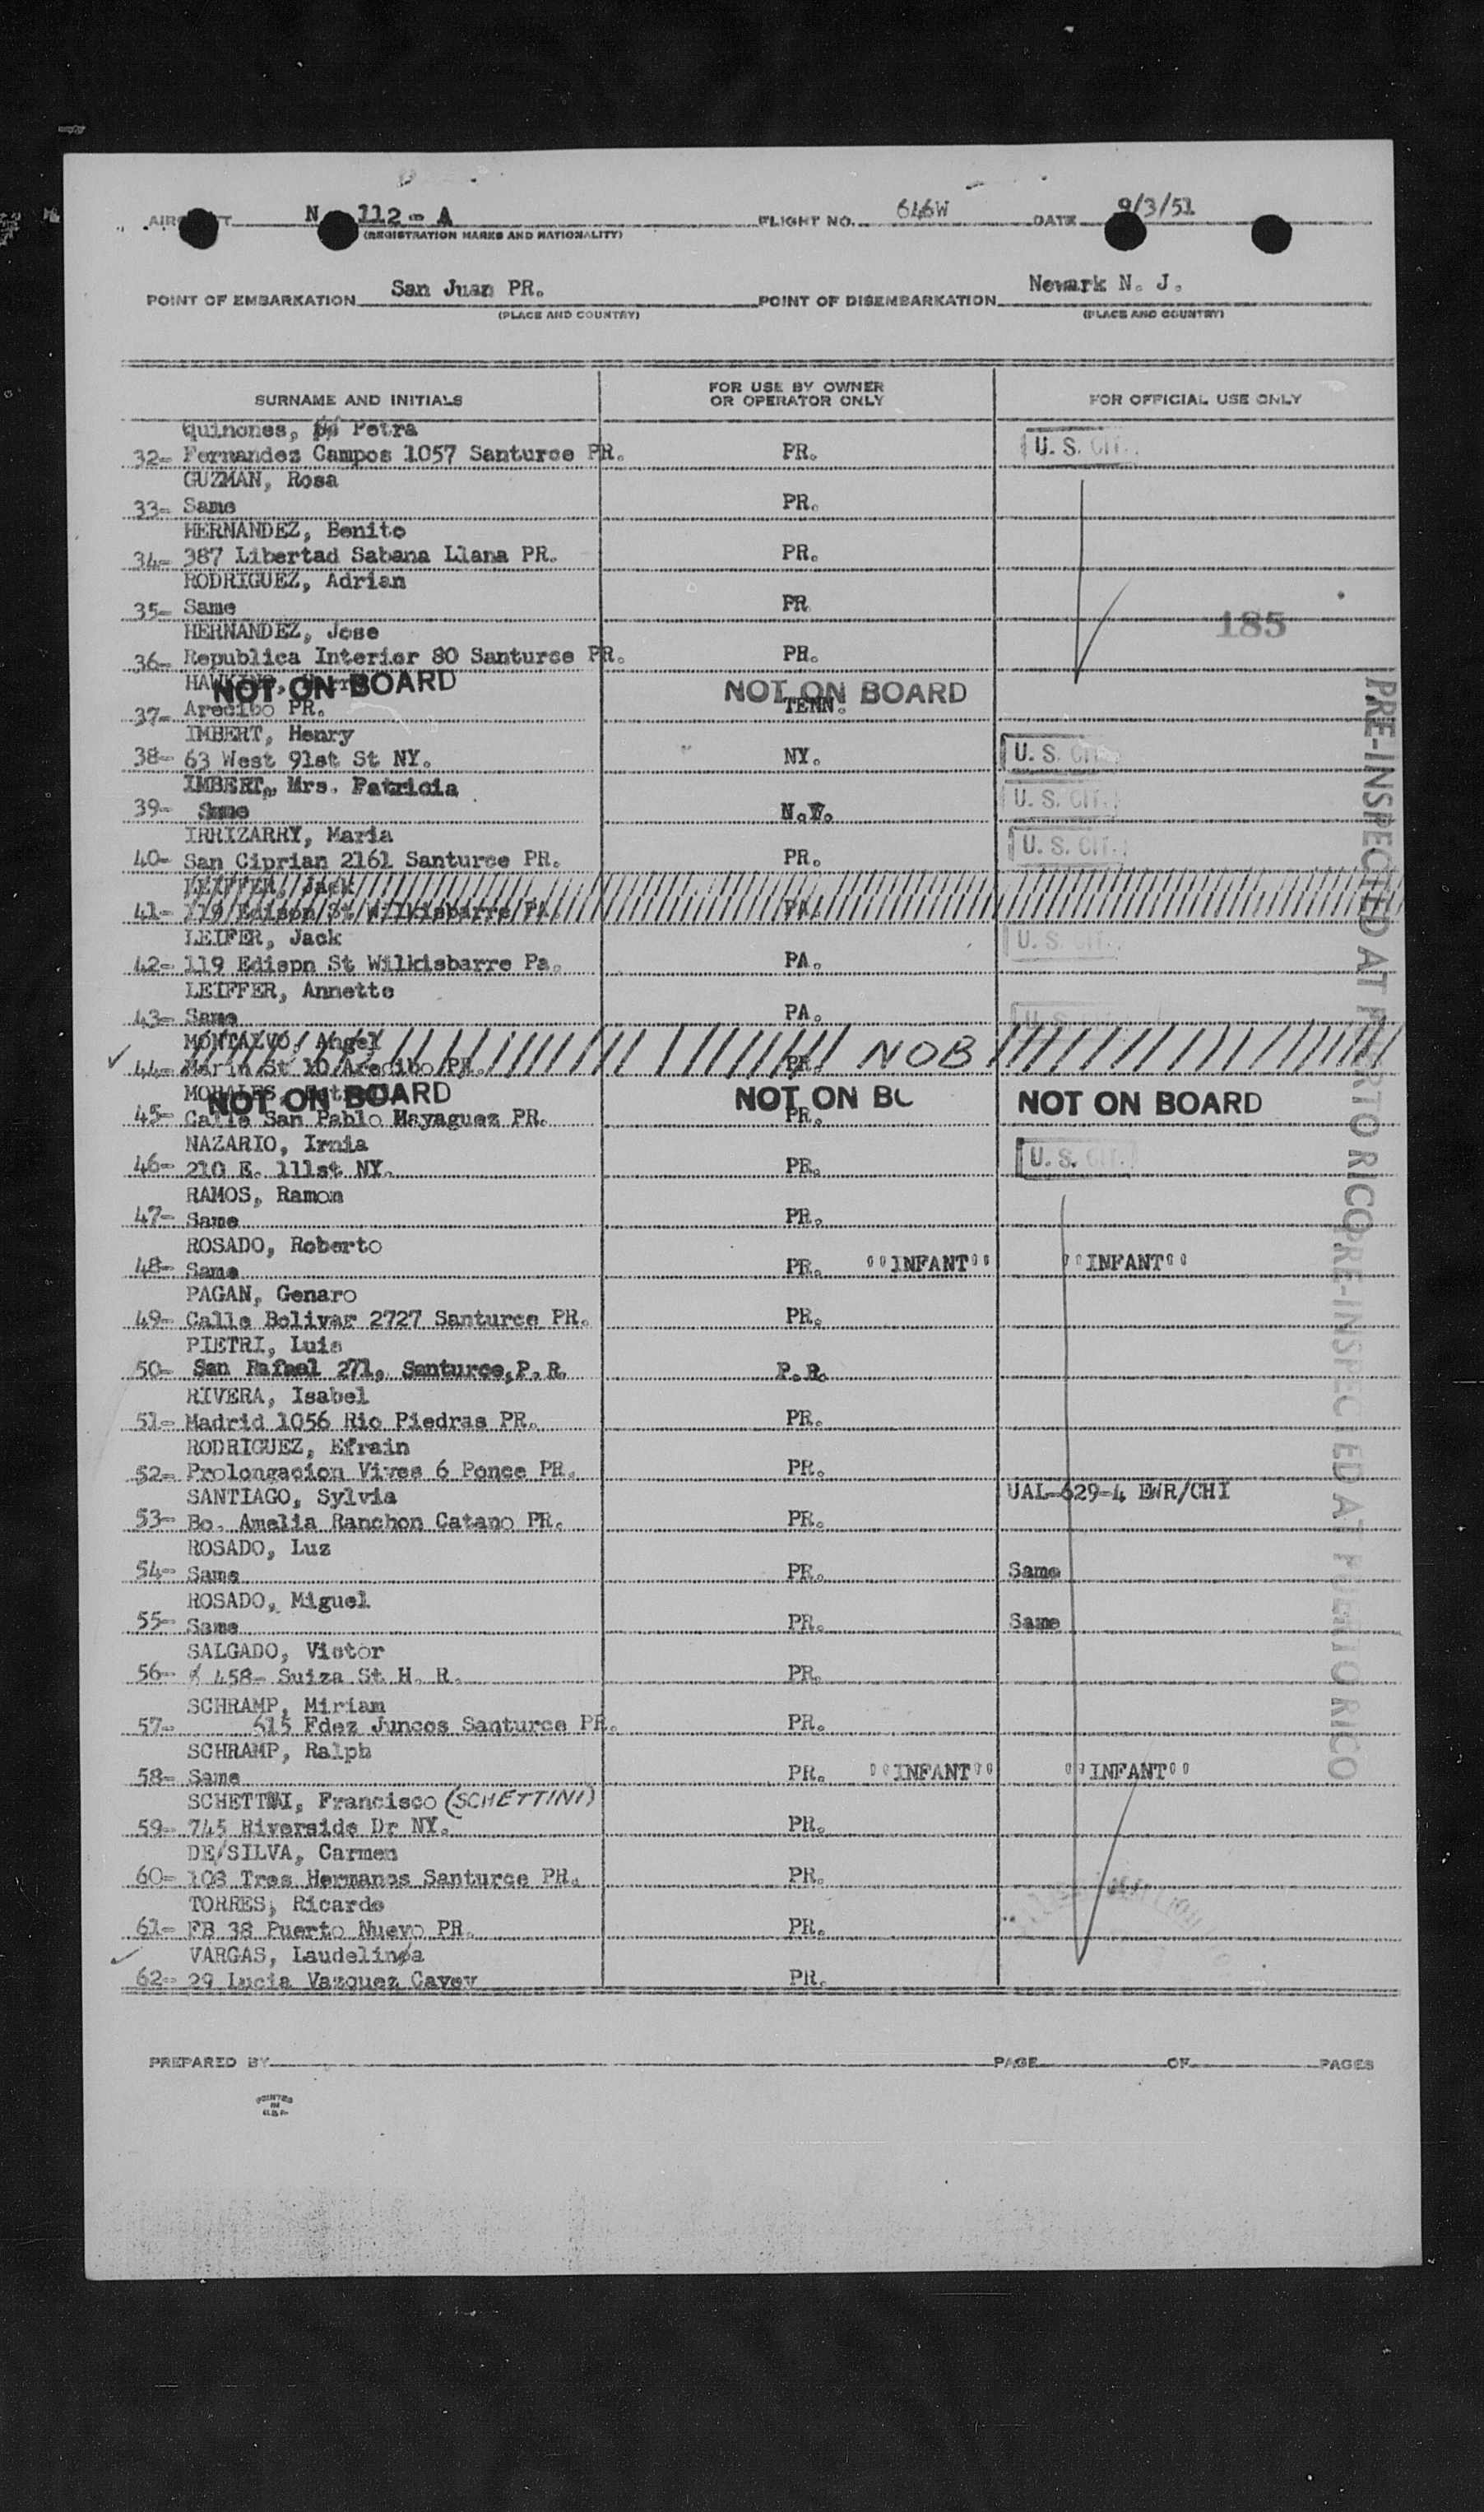 AIRCRAFT N 112-A FLIGHT NO. 646W DATE 9/3/51
(REGISTRATION MARKS AND NATIONALITY)
POINT OF EMBARKATION San Juan PR. POINT OF DISEMBARKATION Newark N. J.
(PLACE AND COUNTRY) (PLACE AND COUNTRY)
SURNAME AND INITIALS FOR USE BY OWNER OR OPERATOR ONLY FOR OFFICIAL USE ONLY
Quinones, Petra
32- Fernandez Campos 1057 Santurce PR. PR. U. S. CIT.
GUZMAN, Rosa
33- Same PR.
HERNANDEZ, Benito
34- 387 Libertad Sabana Llana PR. PR.
RODRIGUEZ, Adrian
35- Same PR
185
HERNANDEZ, Jose
36- Republica Interior 80 Santurce PR. PR.
NOT ON BOARD NOT ON BOARD
37- Arecibo PR. TENN.
IMBERT, Henry
38- 63 West 91st St NY. NY. U. S. CIT.
IMBERT, Mrs. Patricia
39- Same N.Y. U. S. CIT.
IRRIZARRY, Maria
40- San Ciprian 2161 Santurce PR. PR. U. S. CIT.
LEIFFER, Jack
41- 119 Edison St Wilkisbarre PA. PA.
LEIFER, Jack
42- 119 Edispn St Wilkisbarre Pa. PA. U. S. CIT.
LEIFFER, Annette
43- Same PA. U. S.
MONTALVO, Angel
44- Marin St 10 Arecibo PR. PR. NOB
MORALES,
NOT ON BOARD NOT ON BO NOT ON BOARD
45- Calle San Pablo Mayaguez PR. PR.
NAZARIO, Irnia
46- 210 E. 111st NY. PR. U. S. CIT.
RAMOS, Ramon
47- Same PR.
ROSADO, Roberto
48- Same PR. ""INFANT"" ""INFANT""
PAGAN, Genaro
49- Calle Bolivar 2727 Santurce PR. PR.
PIETRI, Luis
50- San Rafael 271, Santurce,P.R. P.R.
RIVERA, Isabel
51- Madrid 1056 Rio Piedras PR. PR.
RODRIGUEZ, Efrain
52- Prolongacion Vives 6 Ponce PR. PR.
SANTIAGO, Sylvia UAL-629-4 EWR/CHI
53- Bo. Amelia Ranchon Catano PR. PR.
ROSADO, Luz
54- Same PR. Same
ROSADO, Miguel
55- Same PR. Same
SALGADO, Victor
56- 458- Suiza St H. R. PR.
SCHRAMP, Miriam
57- 615 Fdez Juncos Santurce PR. PR.
SCHRAMP, Ralph
58- Same PR. ""INFANT"" ""INFANT""
SCHETTNI, Francisco (SCHETTINI)
59- 745 Riverside Dr NY. PR.
DE/SILVA, Carmen
60- 108 Tres Hermanos Santurce PR. PR.
TORRES, Ricardo
61- FB 38 Puerto Nuevo PR. PR.
VARGAS, Laudelina
62- 29 Lucia Vazquez Cayey PR.
PRE-INSPECTED AT PUERTO RICO
PRE-INSPECTED AT PUERTO RICO
PREPARED BY PAGE OF PAGES
PRINTED
IN
U.S.A.